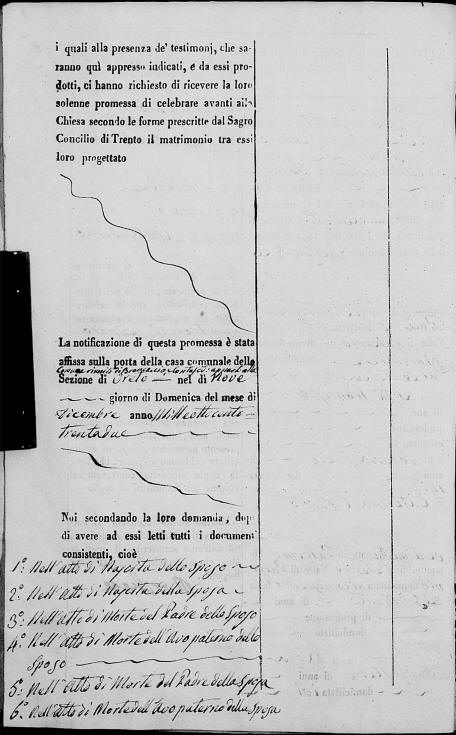 i quali alla presenza de' testimonj, che sa-
ranno quì appresso indicati, e da essi pro-
dotti, ci hanno richiesto di ricevere la loro
solenne promessa di celebrare avanti alla
Chiesa secondo le forme prescritte dal Sagro
Concilio di Trento il matrimonio tra essi
loro progettato
La notificazione di questa promessa è stata
affissa sulla porta della casa comunale della
Comune riunito di
Sezione di nel dì Nove
giorno di Domenica del mese di
Dicembre anno Milleottocento
trentadue
Noi secondando la loro domanda, dopo
di avere ad essi letti tutti i document
consistenti, cioè
1.° Nell'atto di Nascita dello Sposo
2.° Nell'atto di Nascita della Sposa
3.° Nell'Atto di Morte del Padre dello Sposo
4.° Nell'Atto di Morte dell'Avo paterno dello
Sposo
5.° Nell'Atto di Morte del Padre della Sposa
6.° Nell'Atto di Morte dell'Avo paterno della Sposa